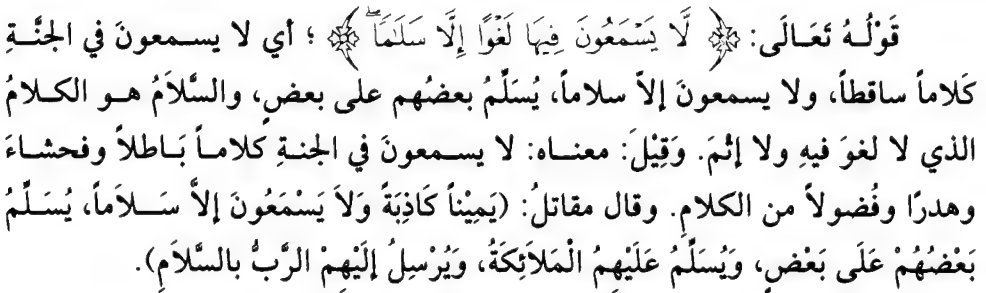 قَوْلُهُ تَعَالَى: ﴿ لَّا يَسْمَعُونَ فِيهَا لَغْوًا إِلَّا سَلَٰمًا ﴾ ؛ أي لا يسمعونَ في الجنَّةِ
كَلاماً ساقطاً، ولا يسمعونَ إلاَّ سلاماً، يُسَلِّمُ بعضُهم على بعضٍ، والسَّلاَمُ هو الكلامُ
الذي لا لغوَ فيهِ ولا إثْمَ. وَقِيْلَ: معناه: لا يسمعونَ في الجنةِ كَلاماً بَاطلاً وفحشاءَ
وهدرًا وفُضولاً من الكلامِ. وقال مقاتلُ: (يَمِيْناً كَاذِبَةً وَلاَ يَسْمَعُونَ إلاَّ سَلاَماً، يُسَلِّمُ
بَعْضُهُمْ عَلَى بَعْضٍ، وَيُسَلِّمُ عَلَيْهِمُ الْمَلاَئِكَةُ، وَيُرْسِلُ إلَيْهِمُ الرَّبُّ بالسَّلاَمِ).